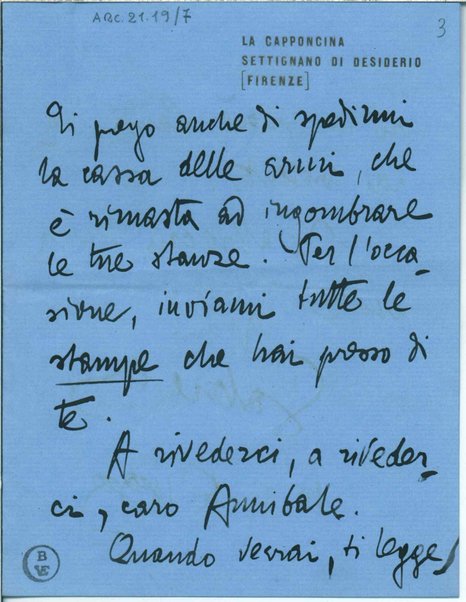 ARC.21.19/7
3
LA CAPPONCINA
SETTIGNANO DI DESIDERIO
[FIRENZE]
Ti prego anche di spedirmi
la cassa delle armi, che
è rimasta ad ingombrare
le tue stanze. Per l'occa-
sione, inviami tutte le
stampe che hai presso di
te.
A rivederci, a riveder-
ci, caro Annibale.
Quando verrai, ti legge
B
VE